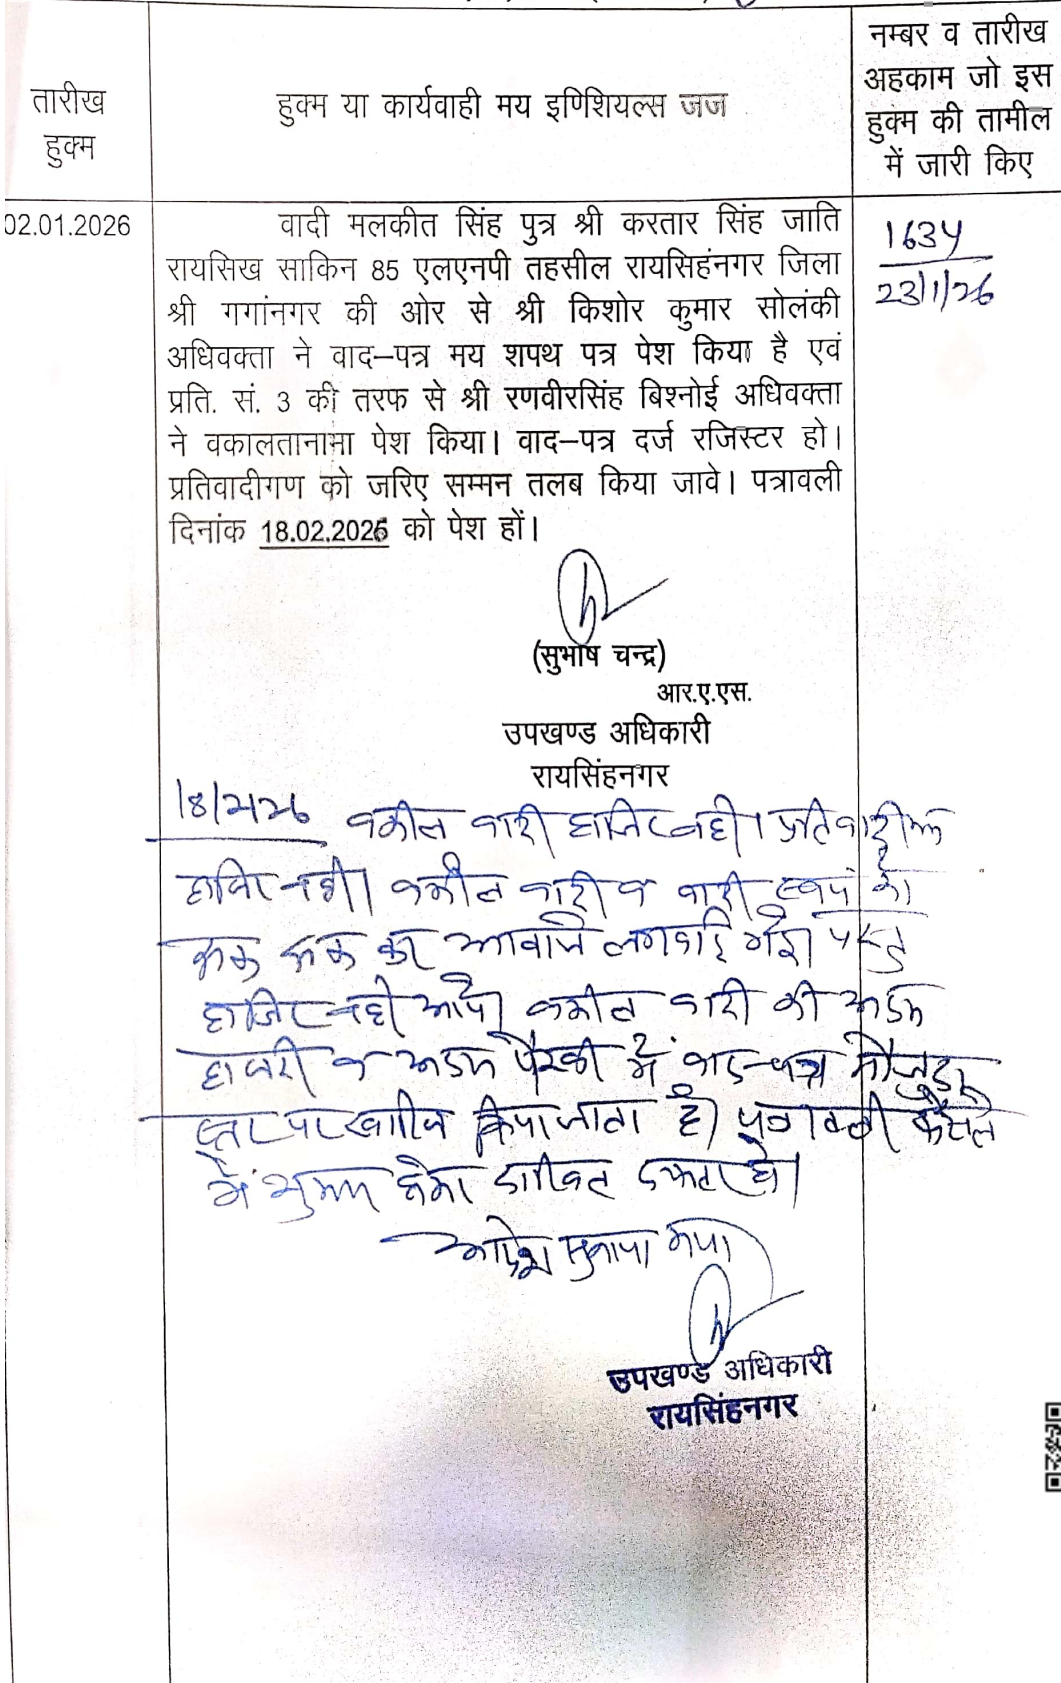 तारीख
हुक्म
हुक्म या कार्यवाही मय इणिशियल्स जज
नम्बर व तारीख
अहकाम जो इस
हुक्म की तामील
में जारी किए
02.01.2026
वादी मलकीत सिंह पुत्र श्री करतार सिंह जाति
रायसिख साकिन 85 एलएनपी तहसील रायसिहंनगर जिला
श्री गगांनगर की ओर से श्री किशोर कुमार सोलंकी
अधिवक्ता ने वाद–पत्र मय शपथ पत्र पेश किया है एवं
प्रति. सं. 3 की तरफ से श्री रणवीरसिंह बिश्नोई अधिवक्ता
ने वकालतानामा पेश किया। वाद–पत्र दर्ज रजिस्टर हो।
प्रतिवादीगण को जरिए सम्मन तलब किया जावे। पत्रावली
दिनांक 18.02.2026 को पेश हों।
1634
23/1/26
(सुभाष चन्द्र)
आर.ए.एस.
उपखण्ड अधिकारी
रायसिंहनगर
18/2/26 वकील वादी हाजिर नही। प्रतिवादीगण
हाजिर नही। वकील वादी व वादी स्वयं को
आवाजे लगवाई गई। परन्तु
हाजिर नही आये। वकील वादी की अदम
हाजरी व अदम पैरवी में वाद-पत्र मौजुदा
स्तर पर खारिज किया जाता है। पत्रावली फैसल
में शुमार होकर दाखिल दफ्तर हो।
आदेश सुनाया गया।
उपखण्ड अधिकारी
रायसिंहनगर